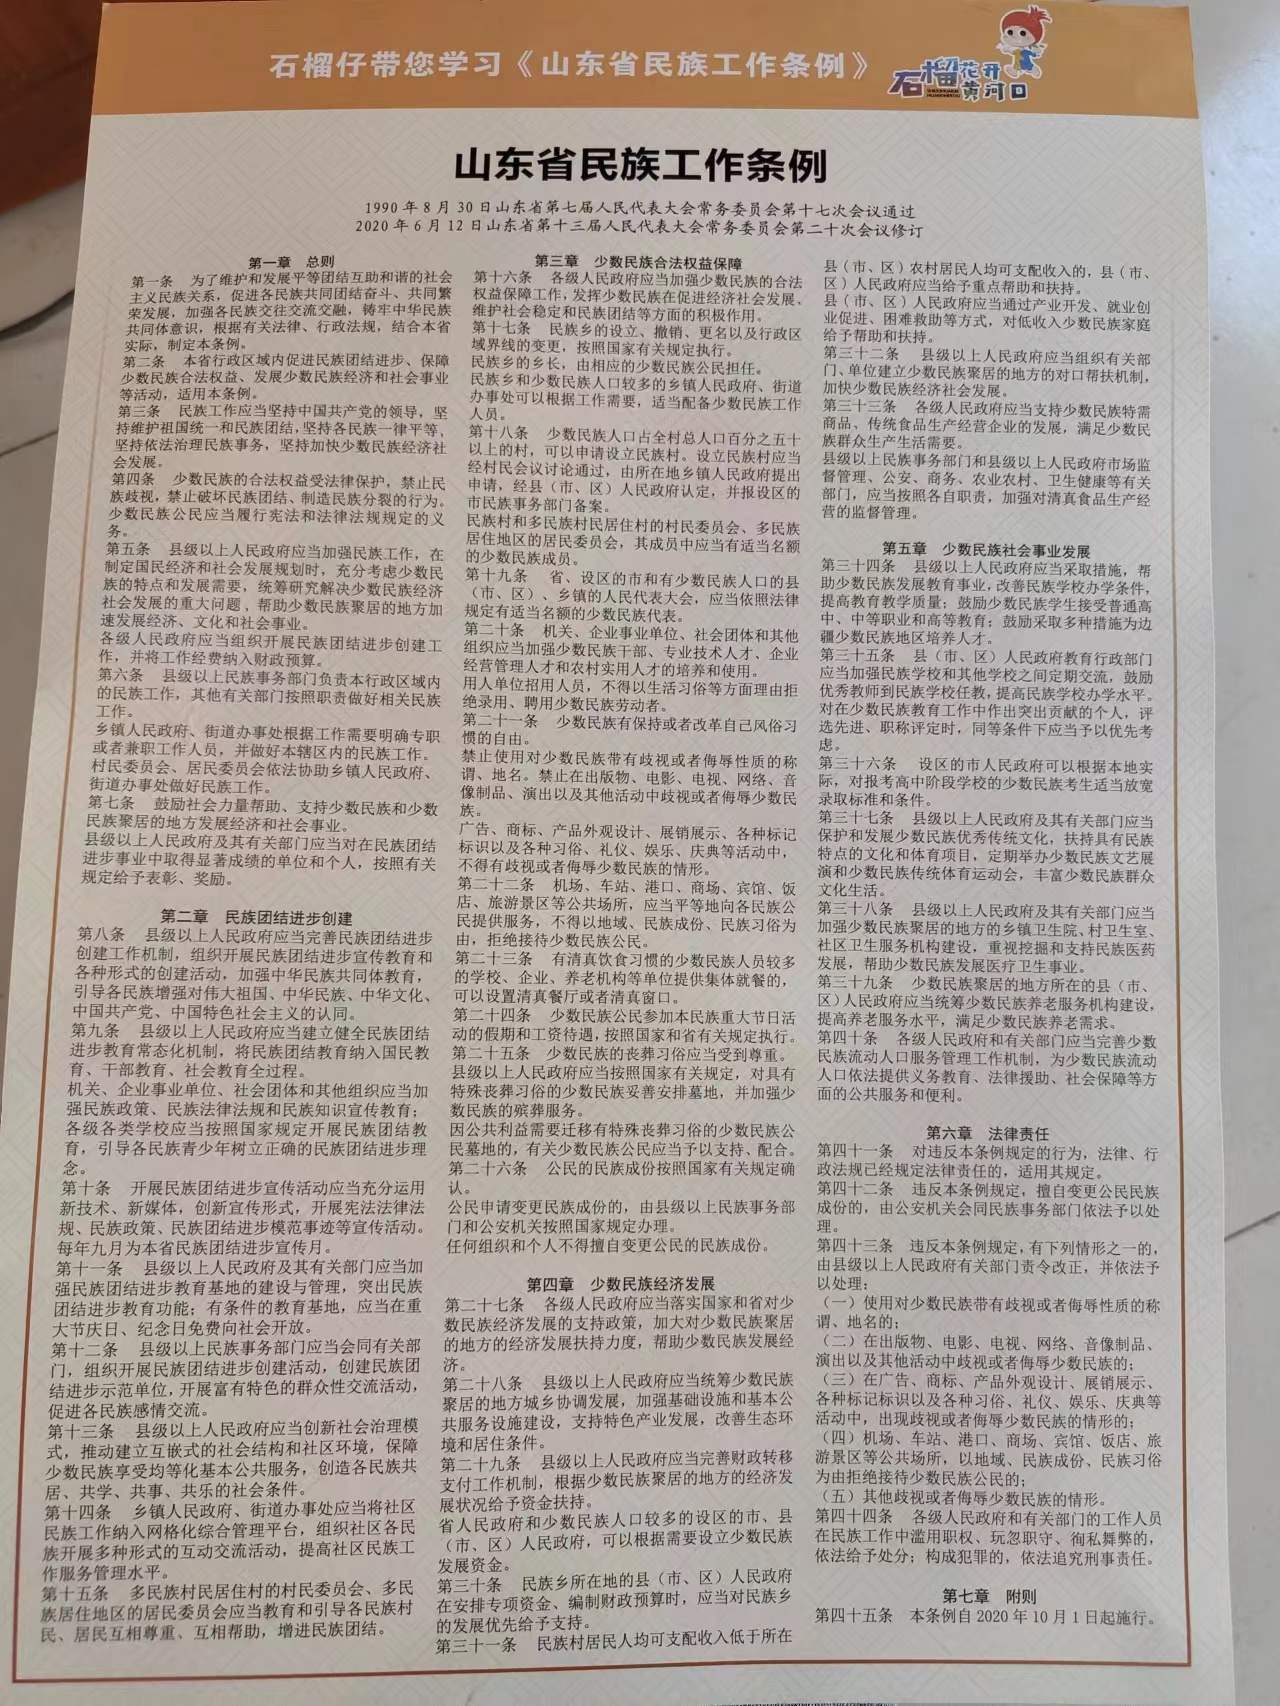 石榴仔带您学习《山东省民族工作条例》
石榴花开
黄河口
山东省民族工作条例
1990年8月30日山东省第七届人民代表大会常务委员会第十七次会议通过
2020年6月12日山东省第十三届人民代表大会常务委员会第二十次会议修订
第一章 总则
第一条 为了维护和发展平等团结互助和谐的社会
主义民族关系，促进各民族共同团结奋斗、共同繁
荣发展，加强各民族交往交流交融，铸牢中华民族
共同体意识，根据有关法律、行政法规，结合本省
实际，制定本条例。
第二条 本省行政区域内促进民族团结进步、保障
少数民族合法权益、发展少数民族经济和社会事业
等活动，适用本条例。
第三条 民族工作应当坚持中国共产党的领导，坚
持维护祖国统一和民族团结，坚持各民族一律平等，
坚持依法治理民族事务，坚持加快少数民族经济社
会发展。
第四条 少数民族的合法权益受法律保护，禁止民
族歧视，禁止破坏民族团结、制造民族分裂的行为。
少数民族公民应当履行宪法和法律法规规定的义
务。
第五条 县级以上人民政府应当加强民族工作，在
制定国民经济和社会发展规划时，充分考虑少数民
族的特点和发展需要，统筹研究解决少数民族经济
社会发展的重大问题，帮助少数民族聚居的地方加
速发展经济、文化和社会事业。
各级人民政府应当组织开展民族团结进步创建工
作，并将工作经费纳入财政预算。
第六条 县级以上民族事务部门负责本行政区域内
的民族工作，其他有关部门按照职责做好相关民族
工作。
乡镇人民政府、街道办事处根据工作需要明确专职
或者兼职工作人员，并做好本辖区内的民族工作。
村民委员会、居民委员会依法协助乡镇人民政府、
街道办事处做好民族工作。
第七条 鼓励社会力量帮助、支持少数民族和少数
民族聚居的地方发展经济和社会事业。
县级以上人民政府及其有关部门应当对在民族团结
进步事业中取得显著成绩的单位和个人，按照有关
规定给予表彰、奖励。
第二章 民族团结进步创建
第八条 县级以上人民政府应当完善民族团结进步
创建工作机制，组织开展民族团结进步宣传教育和
各种形式的创建活动，加强中华民族共同体教育，
引导各民族增强对伟大祖国、中华民族、中华文化、
中国共产党、中国特色社会主义的认同。
第九条 县级以上人民政府应当建立健全民族团结
进步教育常态化机制，将民族团结教育纳入国民教
育、干部教育、社会教育全过程。
机关、企业事业单位、社会团体和其他组织应当加
强民族政策、民族法律法规和民族知识宣传教育；
各级各类学校应当按照国家规定开展民族团结教
育，引导各民族青少年树立正确的民族团结进步理
念。
第十条 开展民族团结进步宣传活动应当充分运用
新技术、新媒体，创新宣传形式，开展宪法法律法
规、民族政策、民族团结进步模范事迹等宣传活动。
每年九月为本省民族团结进步宣传月。
第十一条 县级以上人民政府及其有关部门应当加
强民族团结进步教育基地的建设与管理，突出民族
团结进步教育功能；有条件的教育基地，应当在重
大节庆日、纪念日免费向社会开放。
第十二条 县级以上民族事务部门应当会同有关部
门，组织开展民族团结进步创建活动，创建民族团
结进步示范单位，开展富有特色的群众性交流活动，
促进各民族感情交流。
第十三条 县级以上人民政府应当创新社会治理模
式，推动建立互嵌式的社会结构和社区环境，保障
少数民族享受均等化基本公共服务，创造各民族共
居、共学、共事、共乐的社会条件。
第十四条 乡镇人民政府、街道办事处应当将社区
民族工作纳入网格化综合管理平台，组织社区各民
族开展多种形式的互动交流活动，提高社区民族工
作服务管理水平。
第十五条 多民族村民居住村的村民委员会、多民
族居住地区的居民委员会应当教育和引导各民族村
民、居民互相尊重、互相帮助，增进民族团结。
第三章 少数民族合法权益保障
第十六条 各级人民政府应当加强少数民族的合法
权益保障工作，发挥少数民族在促进经济社会发展、
维护社会稳定和民族团结等方面的积极作用。
第十七条 民族乡的设立、撤销、更名以及行政区
域界线的变更，按照国家有关规定执行。
民族乡的乡长，由相应的少数民族公民担任。
民族乡和少数民族人口较多的乡镇人民政府、街道
办事处可以根据工作需要，适当配备少数民族工作
人员。
第十八条 少数民族人口占全村总人口百分之五十
以上的村，可以申请设立民族村。设立民族村应当
经村民会议讨论通过，由所在地乡镇人民政府提出
申请，经县（市、区）人民政府认定，并报设区的
市民族事务部门备案。
民族村和多民族村民居住村的村民委员会、多民族
居住地区的居民委员会，其成员中应当有适当名额
的少数民族成员。
第十九条 省、设区的市和有少数民族人口的县
（市、区）、乡镇的人民代表大会，应当依照法律
规定有适当名额的少数民族代表。
第二十条 机关、企业事业单位、社会团体和其他
组织应当加强少数民族干部、专业技术人才、企业
经营管理人才和农村实用人才的培养和使用。
用人单位招用人员，不得以生活习俗等方面理由拒
绝录用、聘用少数民族劳动者。
第二十一条 少数民族有保持或者改革自己风俗习
惯的自由。
禁止使用对少数民族带有歧视或者侮辱性质的称
谓、地名。禁止在出版物、电影、电视、网络、音
像制品、演出以及其他活动中歧视或者侮辱少数民
族。
广告、商标、产品外观设计、展销展示、各种标记
标识以及各种习俗、礼仪、娱乐、庆典等活动中，
不得有歧视或者侮辱少数民族的情形。
第二十二条 机场、车站、港口、商场、宾馆、饭
店、旅游景区等公共场所，应当平等地向各民族公
民提供服务，不得以地域、民族成份、民族习俗为
由，拒绝接待少数民族公民。
第二十三条 有清真饮食习惯的少数民族人员较多
的学校、企业、养老机构等单位提供集体就餐的，
可以设置清真餐厅或者清真窗口。
第二十四条 少数民族公民参加本民族重大节日活
动的假期和工资待遇，按照国家和省有关规定执行。
第二十五条 少数民族的丧葬习俗应当受到尊重。
县级以上人民政府应当按照国家有关规定，对具有
特殊丧葬习俗的少数民族妥善安排墓地，并加强少
数民族的殡葬服务。
因公共利益需要迁移有特殊丧葬习俗的少数民族公
民墓地的，有关少数民族公民应当予以支持、配合。
第二十六条 公民的民族成份按照国家有关规定确
认。
公民申请变更民族成份的，由县级以上民族事务部
门和公安机关按照国家规定办理。
任何组织和个人不得擅自变更公民的民族成份。
第四章 少数民族经济发展
第二十七条 各级人民政府应当落实国家和省对少
数民族经济发展的支持政策，加大对少数民族聚居
的地方的经济发展扶持力度，帮助少数民族发展经
济。
第二十八条 县级以上人民政府应当统筹少数民族
聚居的地方城乡协调发展，加强基础设施和基本公
共服务设施建设，支持特色产业发展，改善生态环
境和居住条件。
第二十九条 县级以上人民政府应当完善财政转移
支付工作机制，根据少数民族聚居的地方的经济发
展状况给予资金扶持。
省人民政府和少数民族人口较多的设区的市、县
（市、区）人民政府，可以根据需要设立少数民族
发展资金。
第三十条 民族乡所在地的县（市、区）人民政府
在安排专项资金、编制财政预算时，应当对民族乡
的发展优先给予支持。
第三十一条 民族村居民人均可支配收入低于所在
县（市、区）农村居民人均可支配收入的，县（市、
区）人民政府应当给予重点帮助和扶持。
县（市、区）人民政府应当通过产业开发、就业创
业促进、困难救助等方式，对低收入少数民族家庭
给予帮助和扶持。
第三十二条 县级以上人民政府应当组织有关部
门、单位建立少数民族聚居的地方的对口帮扶机制，
加快少数民族经济社会发展。
第三十三条 各级人民政府应当支持少数民族特需
商品、传统食品生产经营企业的发展，满足少数民
族群众生产生活需要。
县级以上民族事务部门和县级以上人民政府市场监
督管理、公安、商务、农业农村、卫生健康等有关
部门，应当按照各自职责，加强对清真食品生产经
营的监督管理。
第五章 少数民族社会事业发展
第三十四条 县级以上人民政府应当采取措施，帮
助少数民族发展教育事业，改善民族学校办学条件，
提高教育教学质量；鼓励少数民族学生接受普通高
中、中等职业和高等教育；鼓励采取多种措施为边
疆少数民族地区培养人才。
第三十五条 县（市、区）人民政府教育行政部门
应当加强民族学校和其他学校之间定期交流，鼓励
优秀教师到民族学校任教，提高民族学校办学水平。
对在少数民族教育工作中作出突出贡献的个人，评
选先进、职称评定时，同等条件下应当予以优先考
虑。
第三十六条 设区的市人民政府可以根据本地实
际，对报考高中阶段学校的少数民族考生适当放宽
录取标准和条件。
第三十七条 县级以上人民政府及其有关部门应当
保护和发展少数民族优秀传统文化，扶持具有民族
特点的文化和体育项目，定期举办少数民族文艺展
演和少数民族传统体育运动会，丰富少数民族群众
文化生活。
第三十八条 县级以上人民政府及其有关部门应当
加强少数民族聚居的地方的乡镇卫生院、村卫生室、
社区卫生服务机构建设，重视挖掘和支持民族医药
发展，帮助少数民族发展医疗卫生事业。
第三十九条 少数民族聚居的地方所在的县（市、
区）人民政府应当统筹少数民族养老服务机构建设，
提高养老服务水平，满足少数民族养老需求。
第四十条 各级人民政府和有关部门应当完善少数
民族流动人口服务管理工作机制，为少数民族流动
人口依法提供义务教育、法律援助、社会保障等方
面的公共服务和便利。
第六章 法律责任
第四十一条 对违反本条例规定的行为，法律、行
政法规已经规定法律责任的，适用其规定。
第四十二条 违反本条例规定，擅自变更公民民族
成份的，由公安机关会同民族事务部门依法予以处
理。
第四十三条 违反本条例规定，有下列情形之一的，
由县级以上人民政府有关部门责令改正，并依法予
以处理：
（一）使用对少数民族带有歧视或者侮辱性质的称
谓、地名的；
（二）在出版物、电影、电视、网络、音像制品、
演出以及其他活动中歧视或者侮辱少数民族的；
（三）在广告、商标、产品外观设计、展销展示、
各种标记标识以及各种习俗、礼仪、娱乐、庆典等
活动中，出现歧视或者侮辱少数民族的情形的；
（四）机场、车站、港口、商场、宾馆、饭店、旅
游景区等公共场所，以地域、民族成份、民族习俗
为由拒绝接待少数民族公民的；
（五）其他歧视或者侮辱少数民族的情形。
第四十四条 各级人民政府和有关部门的工作人员
在民族工作中滥用职权、玩忽职守、徇私舞弊的，
依法给予处分；构成犯罪的，依法追究刑事责任。
第七章 附则
第四十五条 本条例自2020年10月1日起施行。